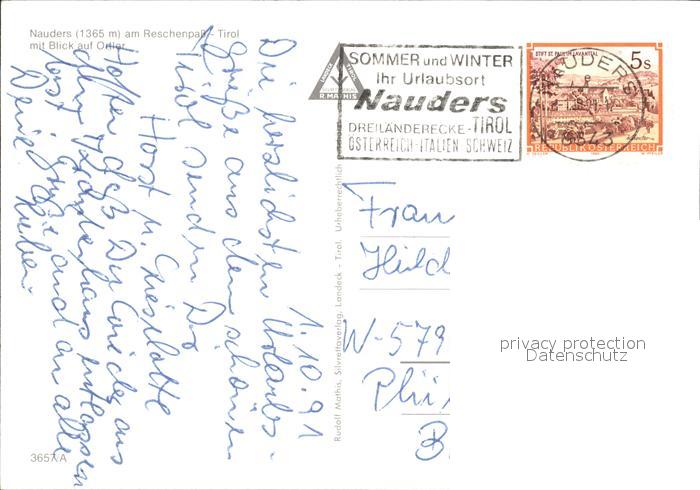 Nauders (1365 m) am Reschenpaß - Tirol
mit Blick auf Ortler
1.10.91
Die herzlichsten Urlaubs-
grüße aus dem schönen
Tirol senden Dir
Horst u.
Hoffen daß Du wieder aus
dem Krankenhaus entlassen
bist. Grüße auch an alle
Deine Lieben.
3657/A
Rudolf Mathis, Silvrettaverlag, Landeck - Tirol. Urheberrechtlich
R. MATHIS
SOMMER und WINTER
Ihr Urlaubsort
Nauders
DREILÄNDERECKE-TIROL
ÖSTERREICH-ITALIEN SCHWEIZ
STIFT ST. PAUL IM LAVANTTAL
5s
NAUDERS
6543
REPUBLIK ÖSTERREICH
Frau
Hild
W-579
Plü
B
privacy protection
Datenschutz